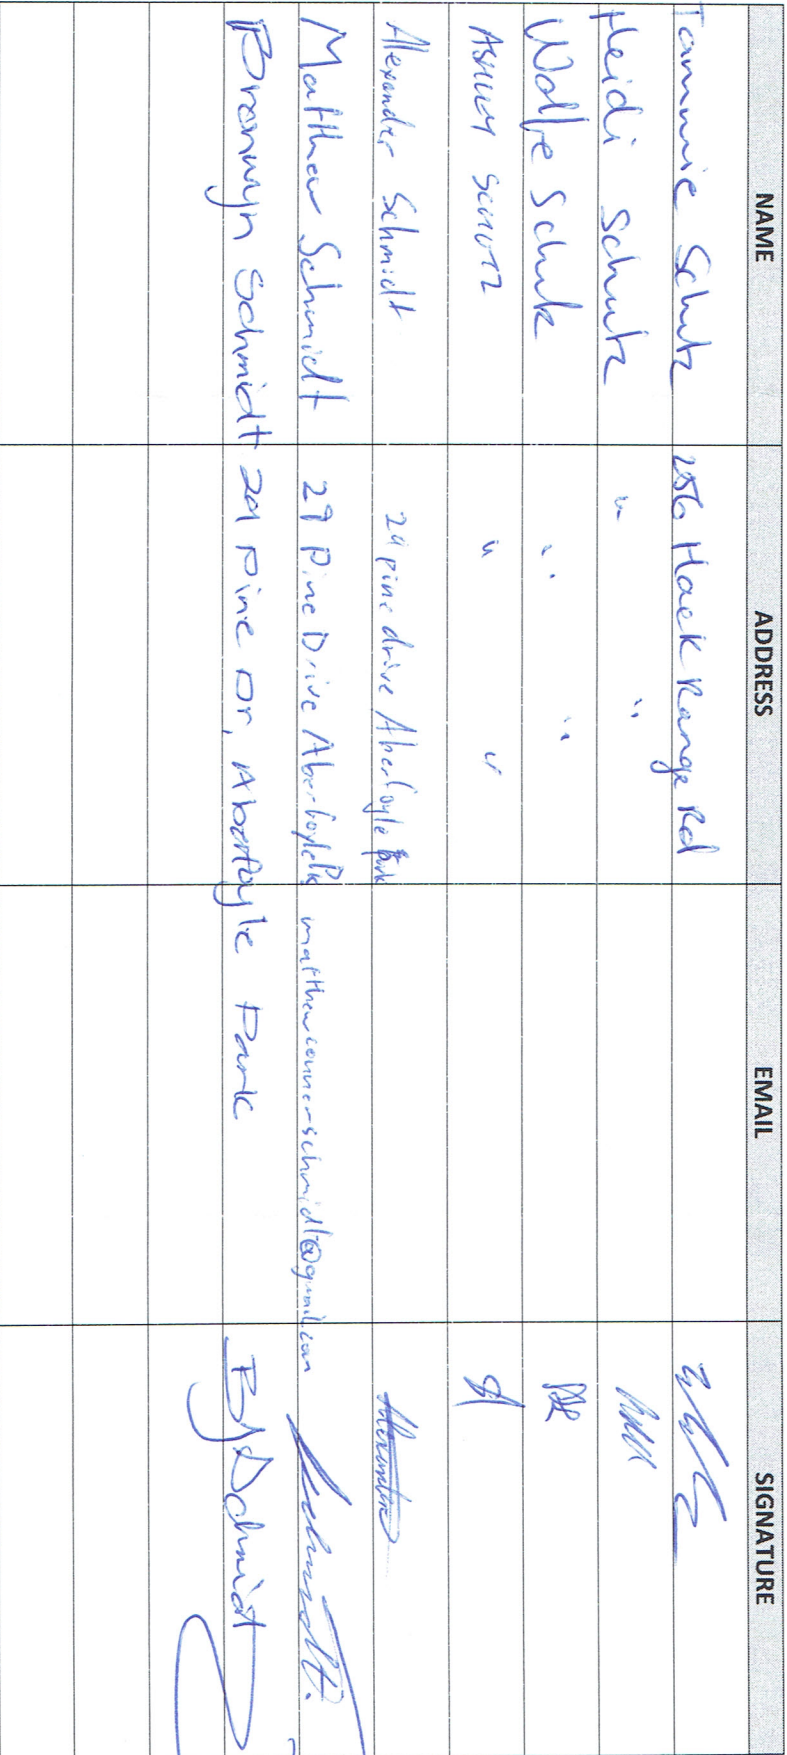 NAME ADDRESS EMAIL SIGNATURE
Tammie Schutz 256 Hack Range Rd
Heidi Schutz " "
Wolfe Schutz " "
Ashley Schutz " "
Alexander Schmidt 29 pine drive Aberfoyle Park
Matthew Schmidt 29 Pine Drive Aberfoyle Pk matthewconnerschmidt@gmail.com
Bronwyn Schmidt 29 Pine Dr, Aberfoyle Park BJSchmidt